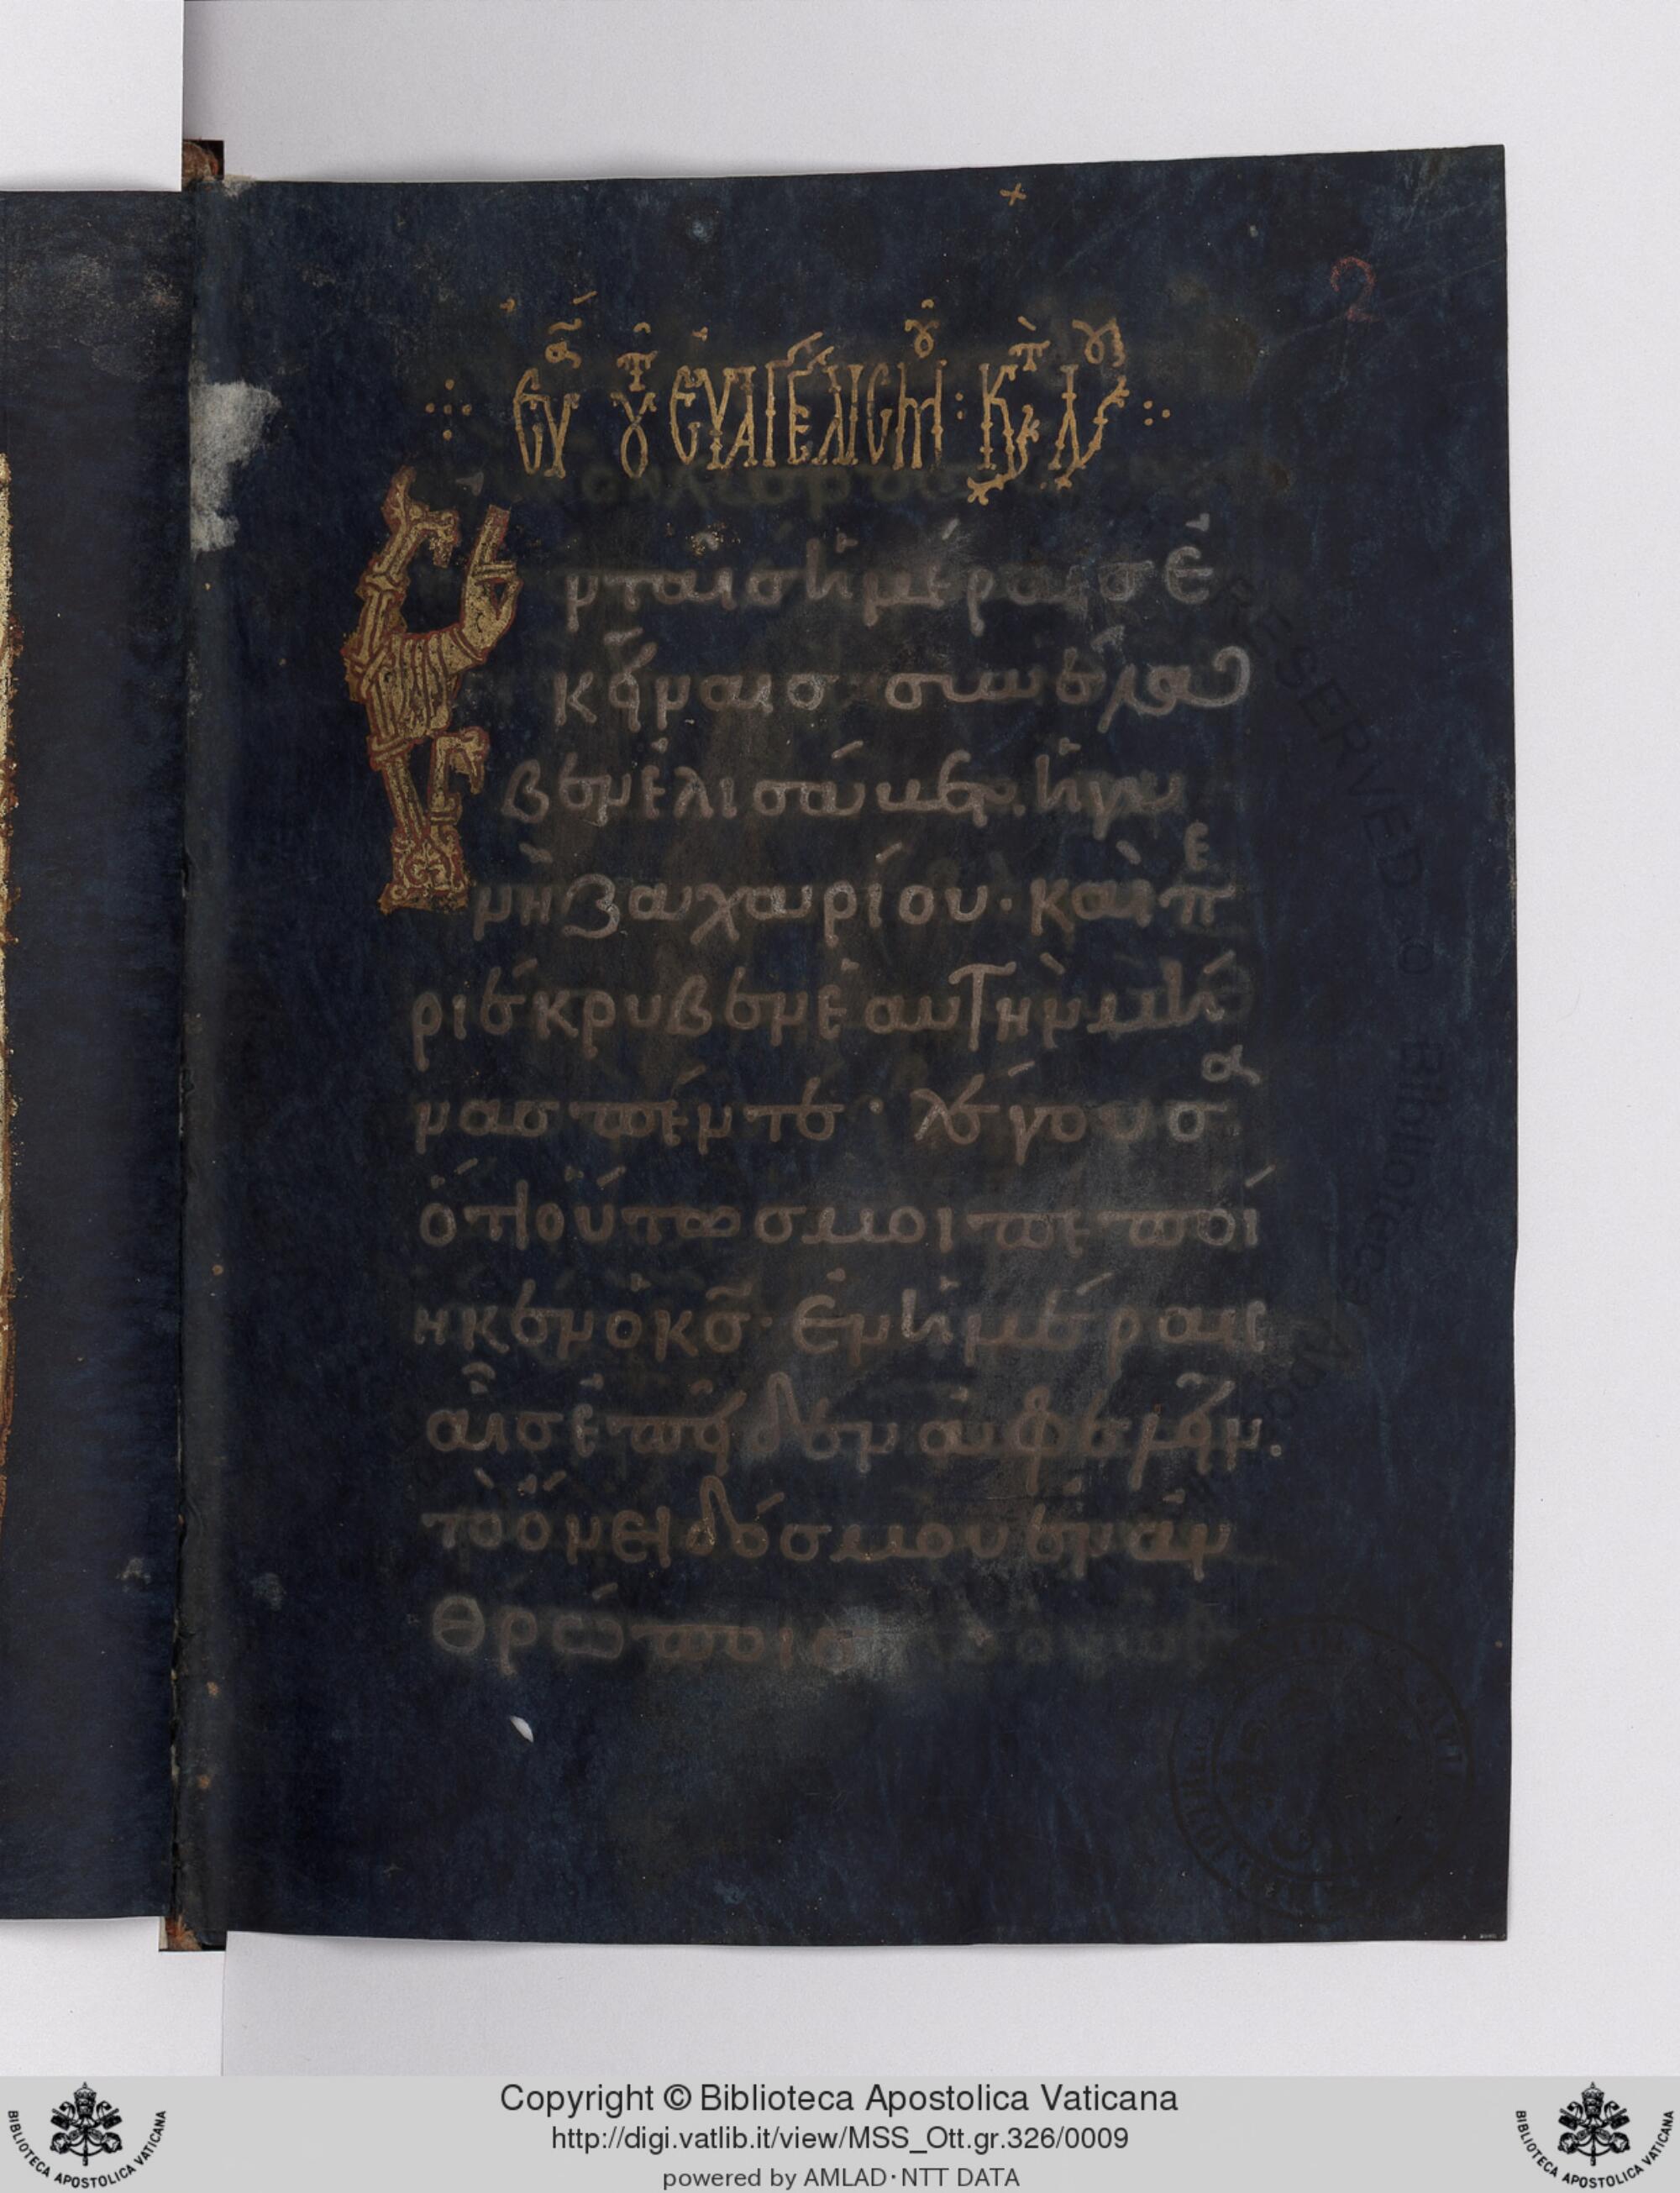 2
Εὐα τοῦ εὐαγγελισμοῦ: κατὰ Λου
Ἐν ταῖς ἡμέραις ἐ
κείναις συνέλα
βεν ἐλισάβετ. ἡ γυ
νὴ ζαχαρίου. καὶ πε
ριέκρυβεν ἑαυτὴν μῆ
νας πέντε. λέγουσα
ὅτι οὕτως μοι πεποί
ηκεν ὁ κς. ἐν ἡμέραις
αἷς ἐπεῖδεν ἀφελεῖν.
τὸ ὄνειδός μου ἐν ἀν
θρώποις
Copyright © Biblioteca Apostolica Vaticana
http://digi.vatlib.it/view/MSS_Ott.gr.326/0009
powered by AMLAD·NTT DATA
BIBLIOTECA APOSTOLICA VATICANA
BIBLIOTECA APOSTOLICA VATICANA